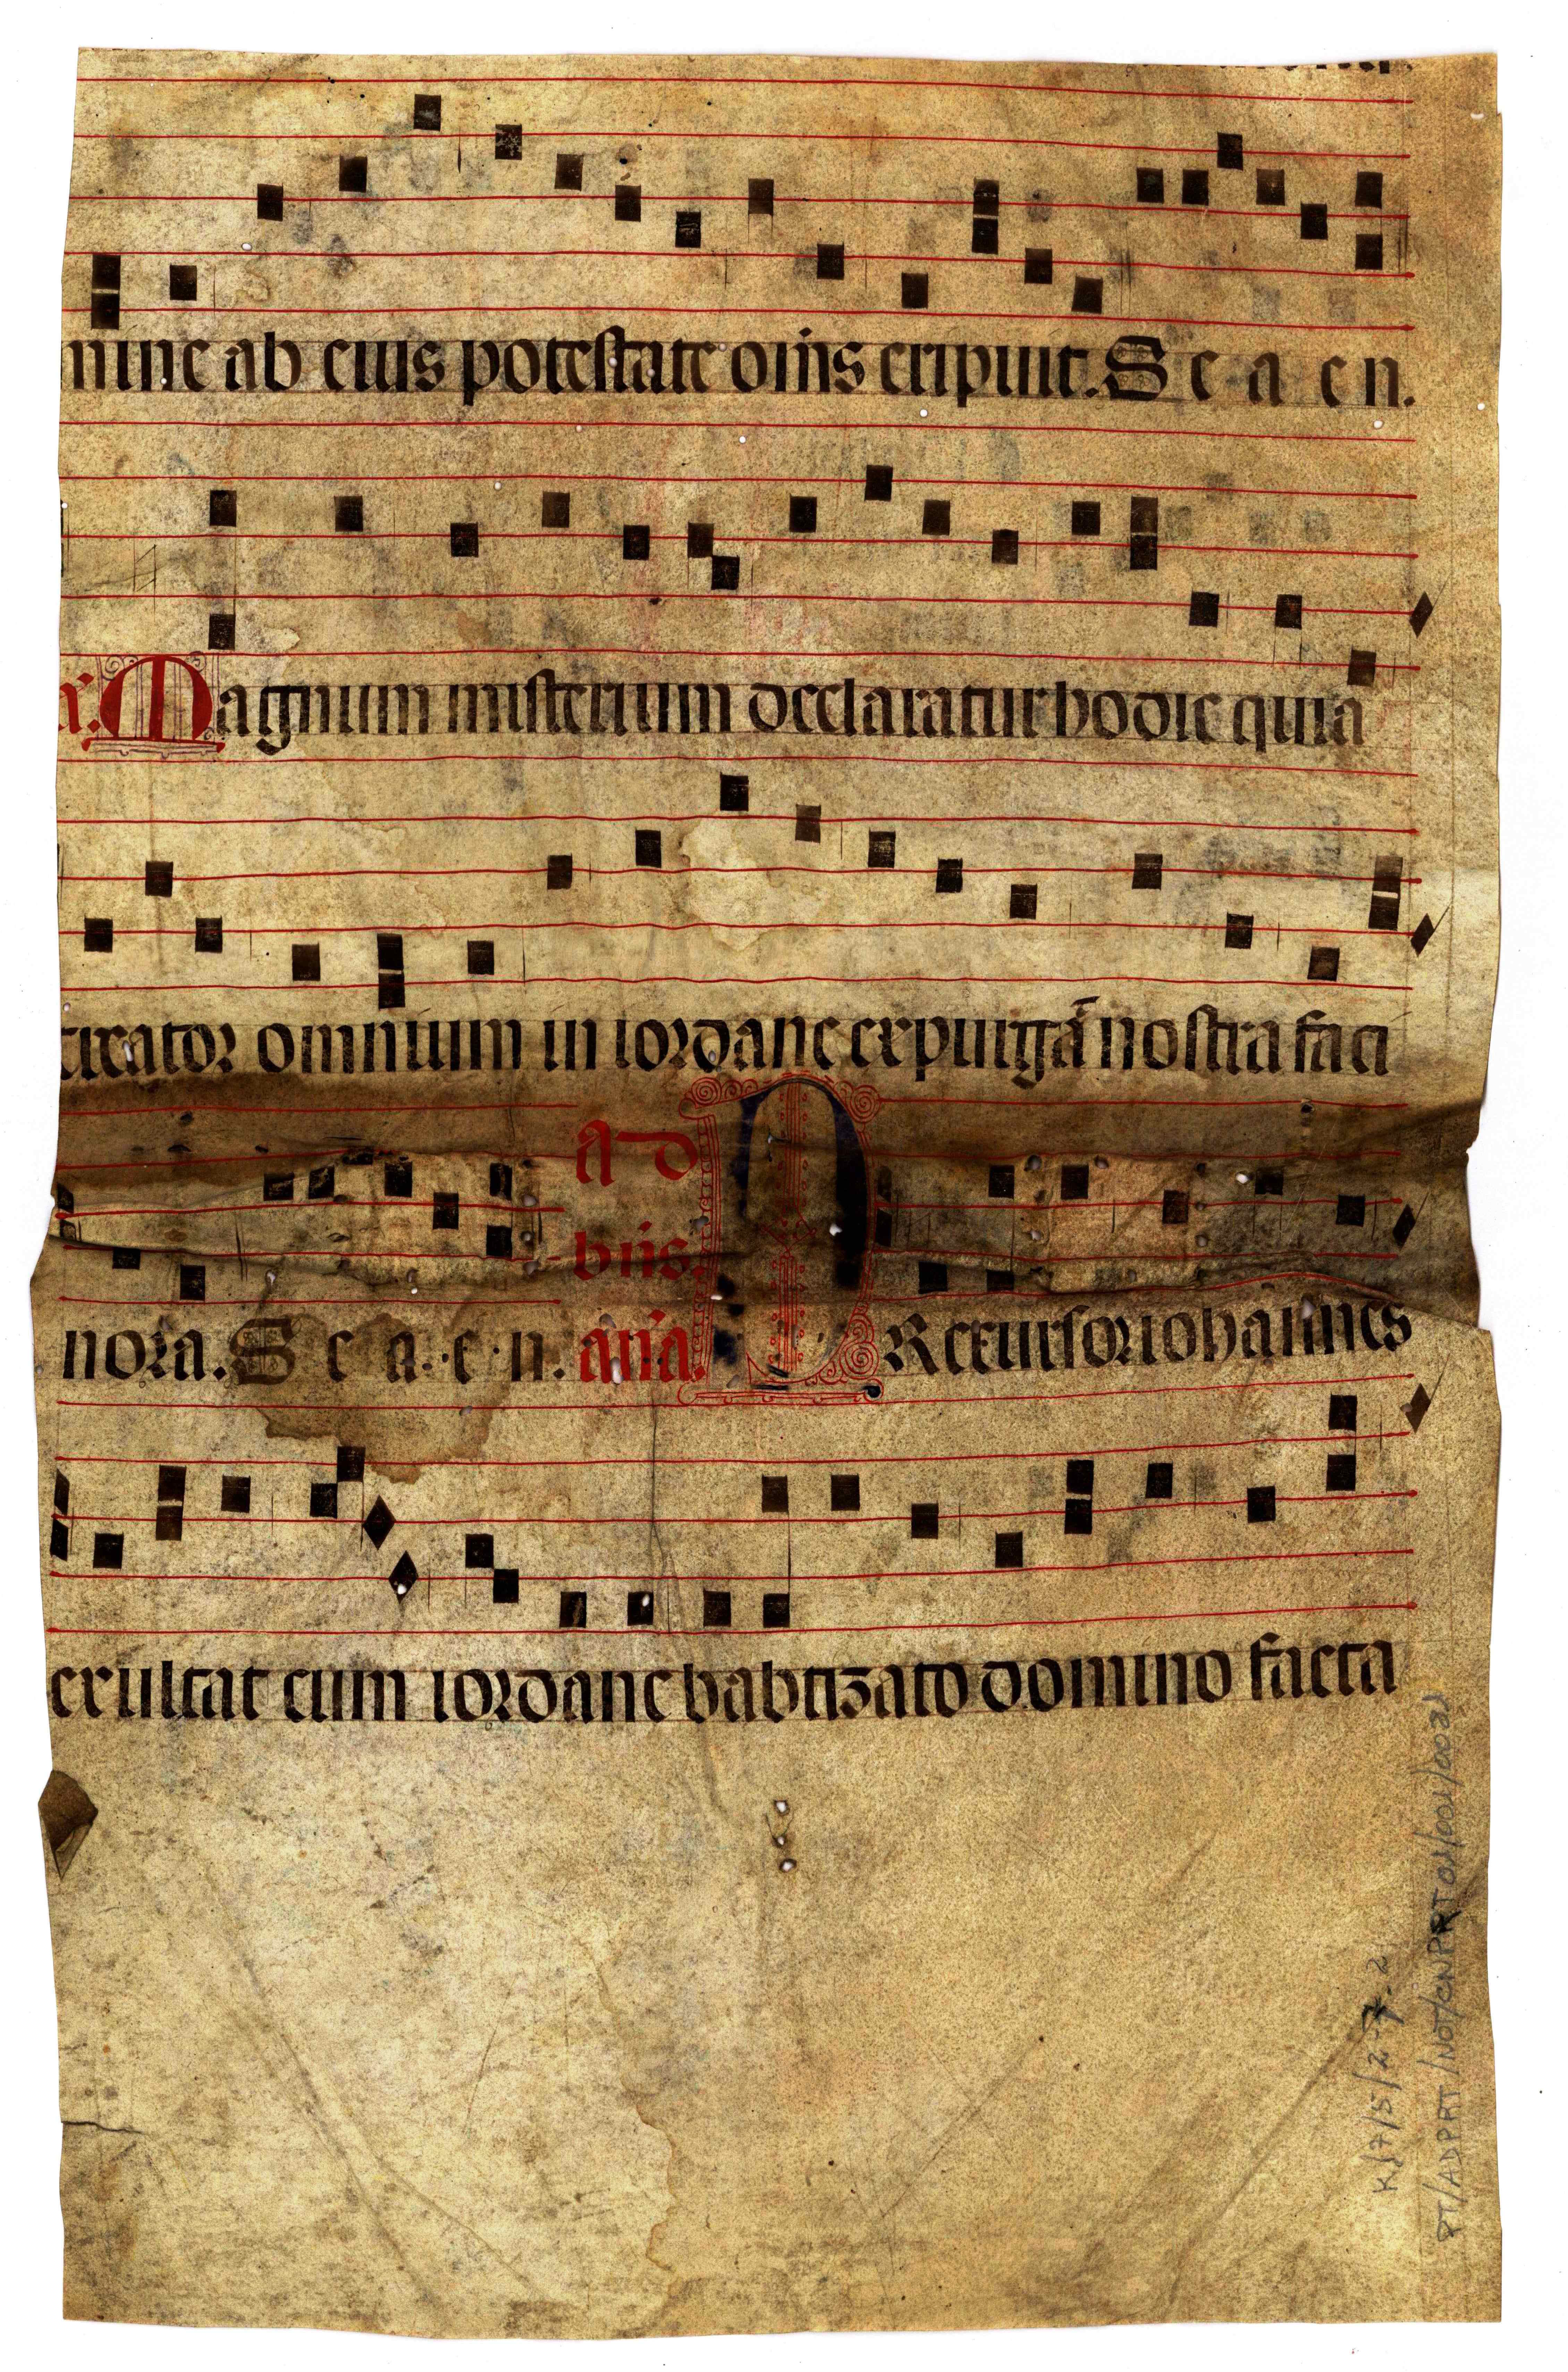 nine ab eius potestate oīns eripuit. S e a e n.
a. Magnum misterium declaratur hodie quia
creator omnium in iordane expurgā nostra faci
nora. S e a e n. ad bn̄s. an̄a. PRecursor iohannes
exultat cum iordane babtizato domino facta
K/7/5/2-7.2
PT/ADPRT/NOT/CNPRT01/001/0021